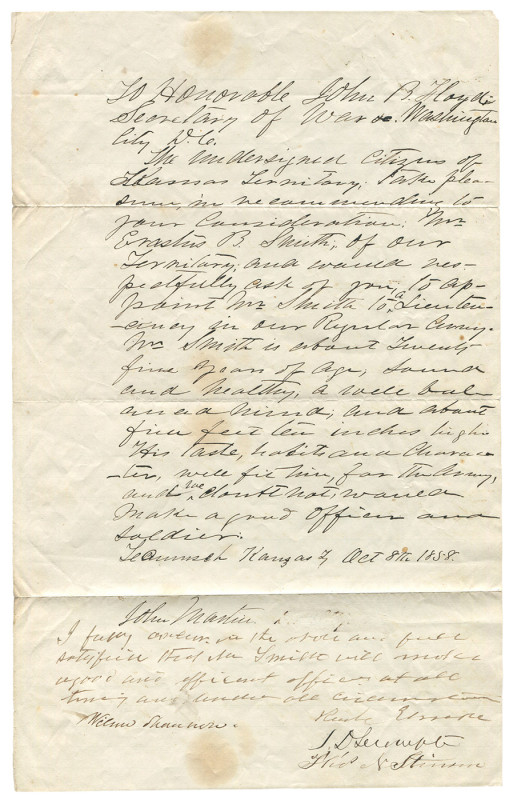 To Honorable John B. Floyd
Secretary of War &c. Washington
City D.C.
The Undersigned Citizens of
Kansas Territory, take plea-
sure, in recommending to
your Consideration, Mr
Erastus B. Smith, of our
Territory, and would res-
pectfully ask of you, to ap-
point Mr Smith to a Lieuten-
-ancy in our Regular Army.
Mr Smith is about Twenty
five years of Age, sound
and healthy, a well bal-
anced mind, and about
five feet ten inches high
His taste, habits and Charac-
-ter, will fit him, for the Army,
and we doubt not, would
make a good Officer and
Soldier.
Tecumseh Kansas Ty Oct 8th 1858.
John Martin
I fully concur in the above and feel
satisfied that Mr Smith will make
a good and efficient officer at all
times and under all circumstances
Wilson Shannon.
Rush Elmore
J. D Lecompte
Thos N Stinson